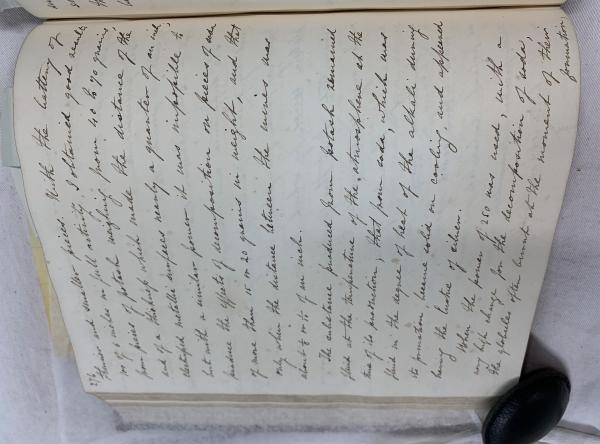 thinner and smaller pieces. With the battery of
100 of 6 inches in full activity I obtained good results
from pieces of potash weighing from 40 to 70 grains
and of a thickness which made the distance of the
electrified metallic surfaces nearly a quarter of an inch
but with a similar power it was impossible to
produce the effects of decomposition on pieces of soda
of more than 15 or 20 grains in weight, and that
only when the distance between the wires was
about 1/8 or 1/10 of an inch.
The substance produced from potash remained
fluid at the temperature of the atmosphere at the
time of its production; that from soda, which was
fluid in the degree of heat of the alkali during
its formation, became solid on cooling and appeared
having the lustre of silver.
When the power of 250 was used, with a
very high charge for the decomposition of soda,
the globules often burnt at the moment of their
formation,